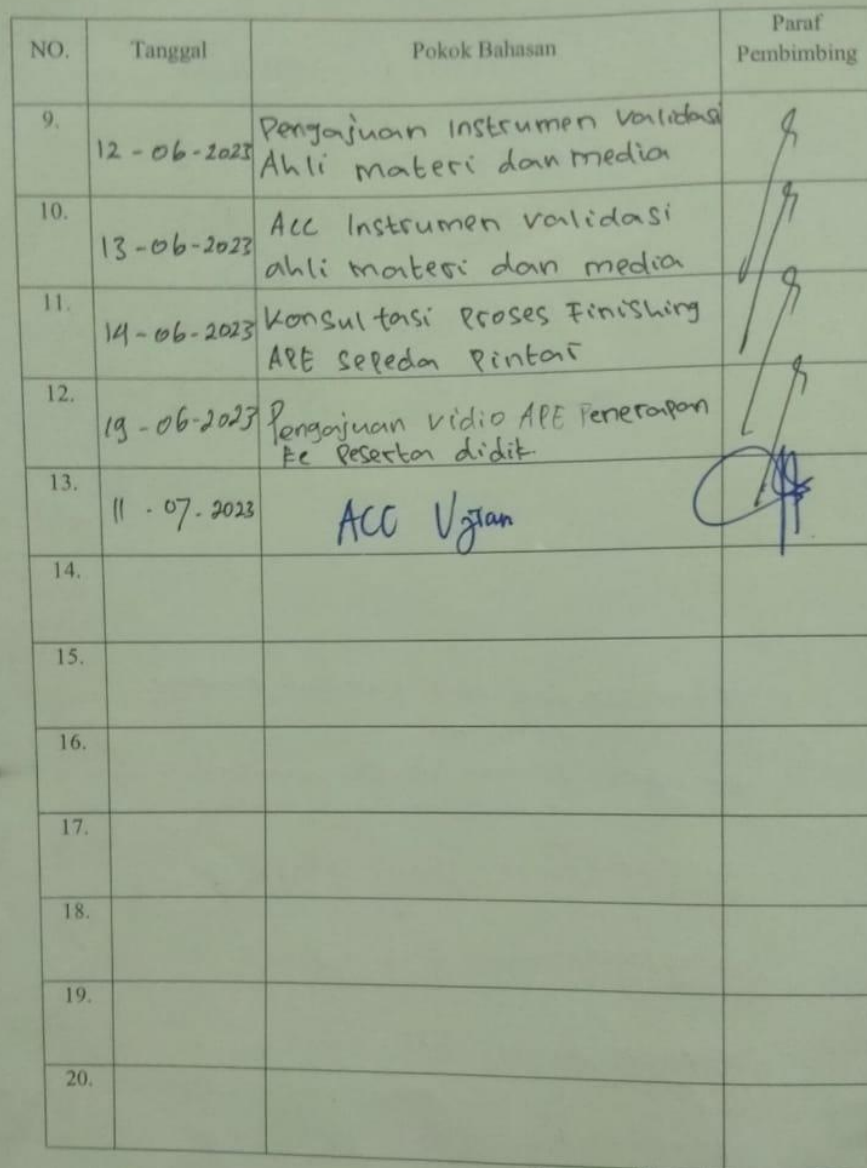 NO. Tanggal Pokok Bahasan Paraf
Pembimbing
9. 12-06-2023 Pengajuan Instrumen validasi
Ahli materi dan media
10. 13-06-2023 Acc Instrumen validasi
ahli materi dan media
11. 14-06-2023 Konsultasi Proses Finishing
APE Sepeda Pintar
12. 19-06-2023 Pengajuan vidio APE Penerapan
ke Peserta didik
13. 11-07-2023 ACC Ujian
14.
15.
16.
17.
18.
19.
20.